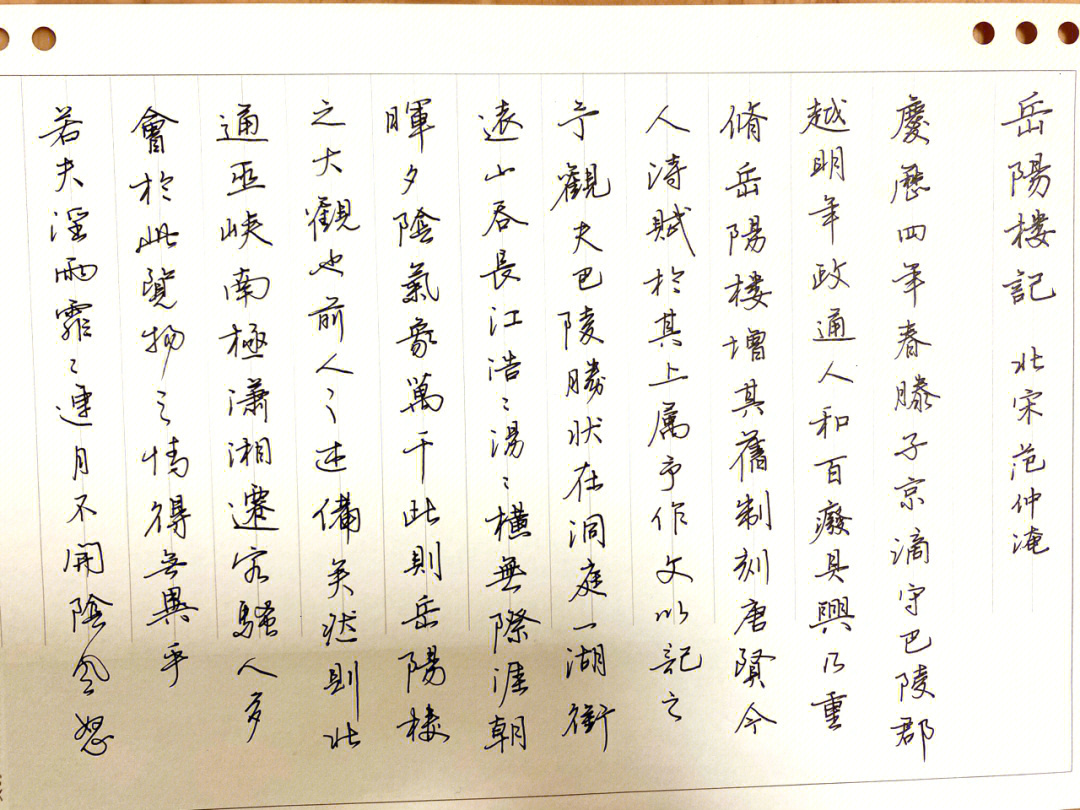 岳陽樓記 北宋范仲淹
慶歷四年春滕子京滴守巴陵郡
越明年政通人和百癈具興乃重
脩岳陽樓增其舊制刻唐賢今
人詩賦於其上属予作文以記之
予觀夫巴陵勝状在洞庭一湖銜
遠山吞長江浩〻湯〻橫無際涯朝
暉夕陰氣象萬千此則岳陽樓
之大觀也前人之述備矣然則北
通巫峽南極瀟湘遷客騷人多
會於此覽物之情得無異乎
若夫淫雨霏〻連月不開陰風怒